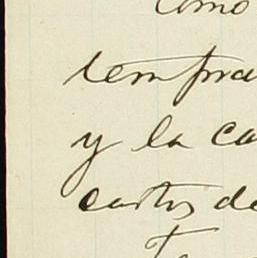 como
tempra
y la ca
cartas de